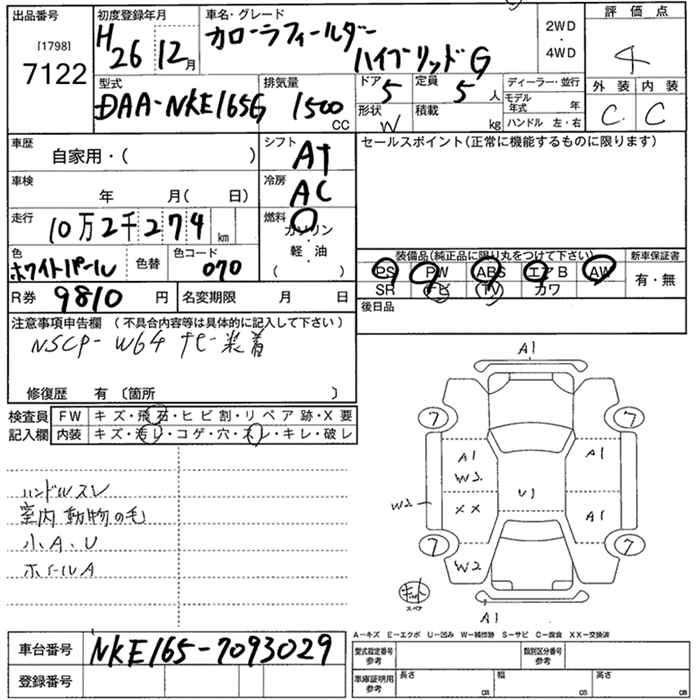 出品番号 初度登録年月 車名・グレード 2WD・4WD 評価点
[1798] 7122 H26 12月 カローラフィールダー ハイブリッドG 4
型式 排気量 ドア 定員 ディーラー・並行 外装 内装
DAA-NKE165G 1500CC 5 5人 モデル年式 年 C C
形状 W 積載 kg ハンドル 左・右
車歴 自家用・( ) シフト AT セールスポイント(正常に機能するものに限ります)
車検 年 月( 日) 冷房 AC
走行 10万2千274km 燃料 ガソリン・軽・油 ( )
色 ホワイトパール 色替 色コード 070
装備品(純正品に限り丸をつけて下さい) 新車保証書
PS PW ABS エアB AW 有・無
SR ナビ TV カワ
R券 9810円 名変期限 月 日 後日品
注意事項申告欄(不具合内容等は具体的に記入して下さい)
NSCP-W64 ナビ装着
修復歴 有〔箇所 〕
検査員 FW キズ・飛石・ヒビ割・リペア跡・X要
記入欄 内装 キズ・汚レ・コゲ・穴・スレ・キレ・破レ
ハンドルスレ
室内動物の毛
小A、U
ホイールA
A1
7 7
A1 A1
W2 U1
W2 XX A1
7 7
W2
キット
スペア
A1
A-キズ E-エクボ U-凹み W-補修跡 S-サビ C-腐食 XX-交換済
車台番号 NKE165-7093029 型式指定番号 参考 類別区分番号 参考
登録番号 車庫証明用 参考 長さ cm 幅 cm 高さ cm